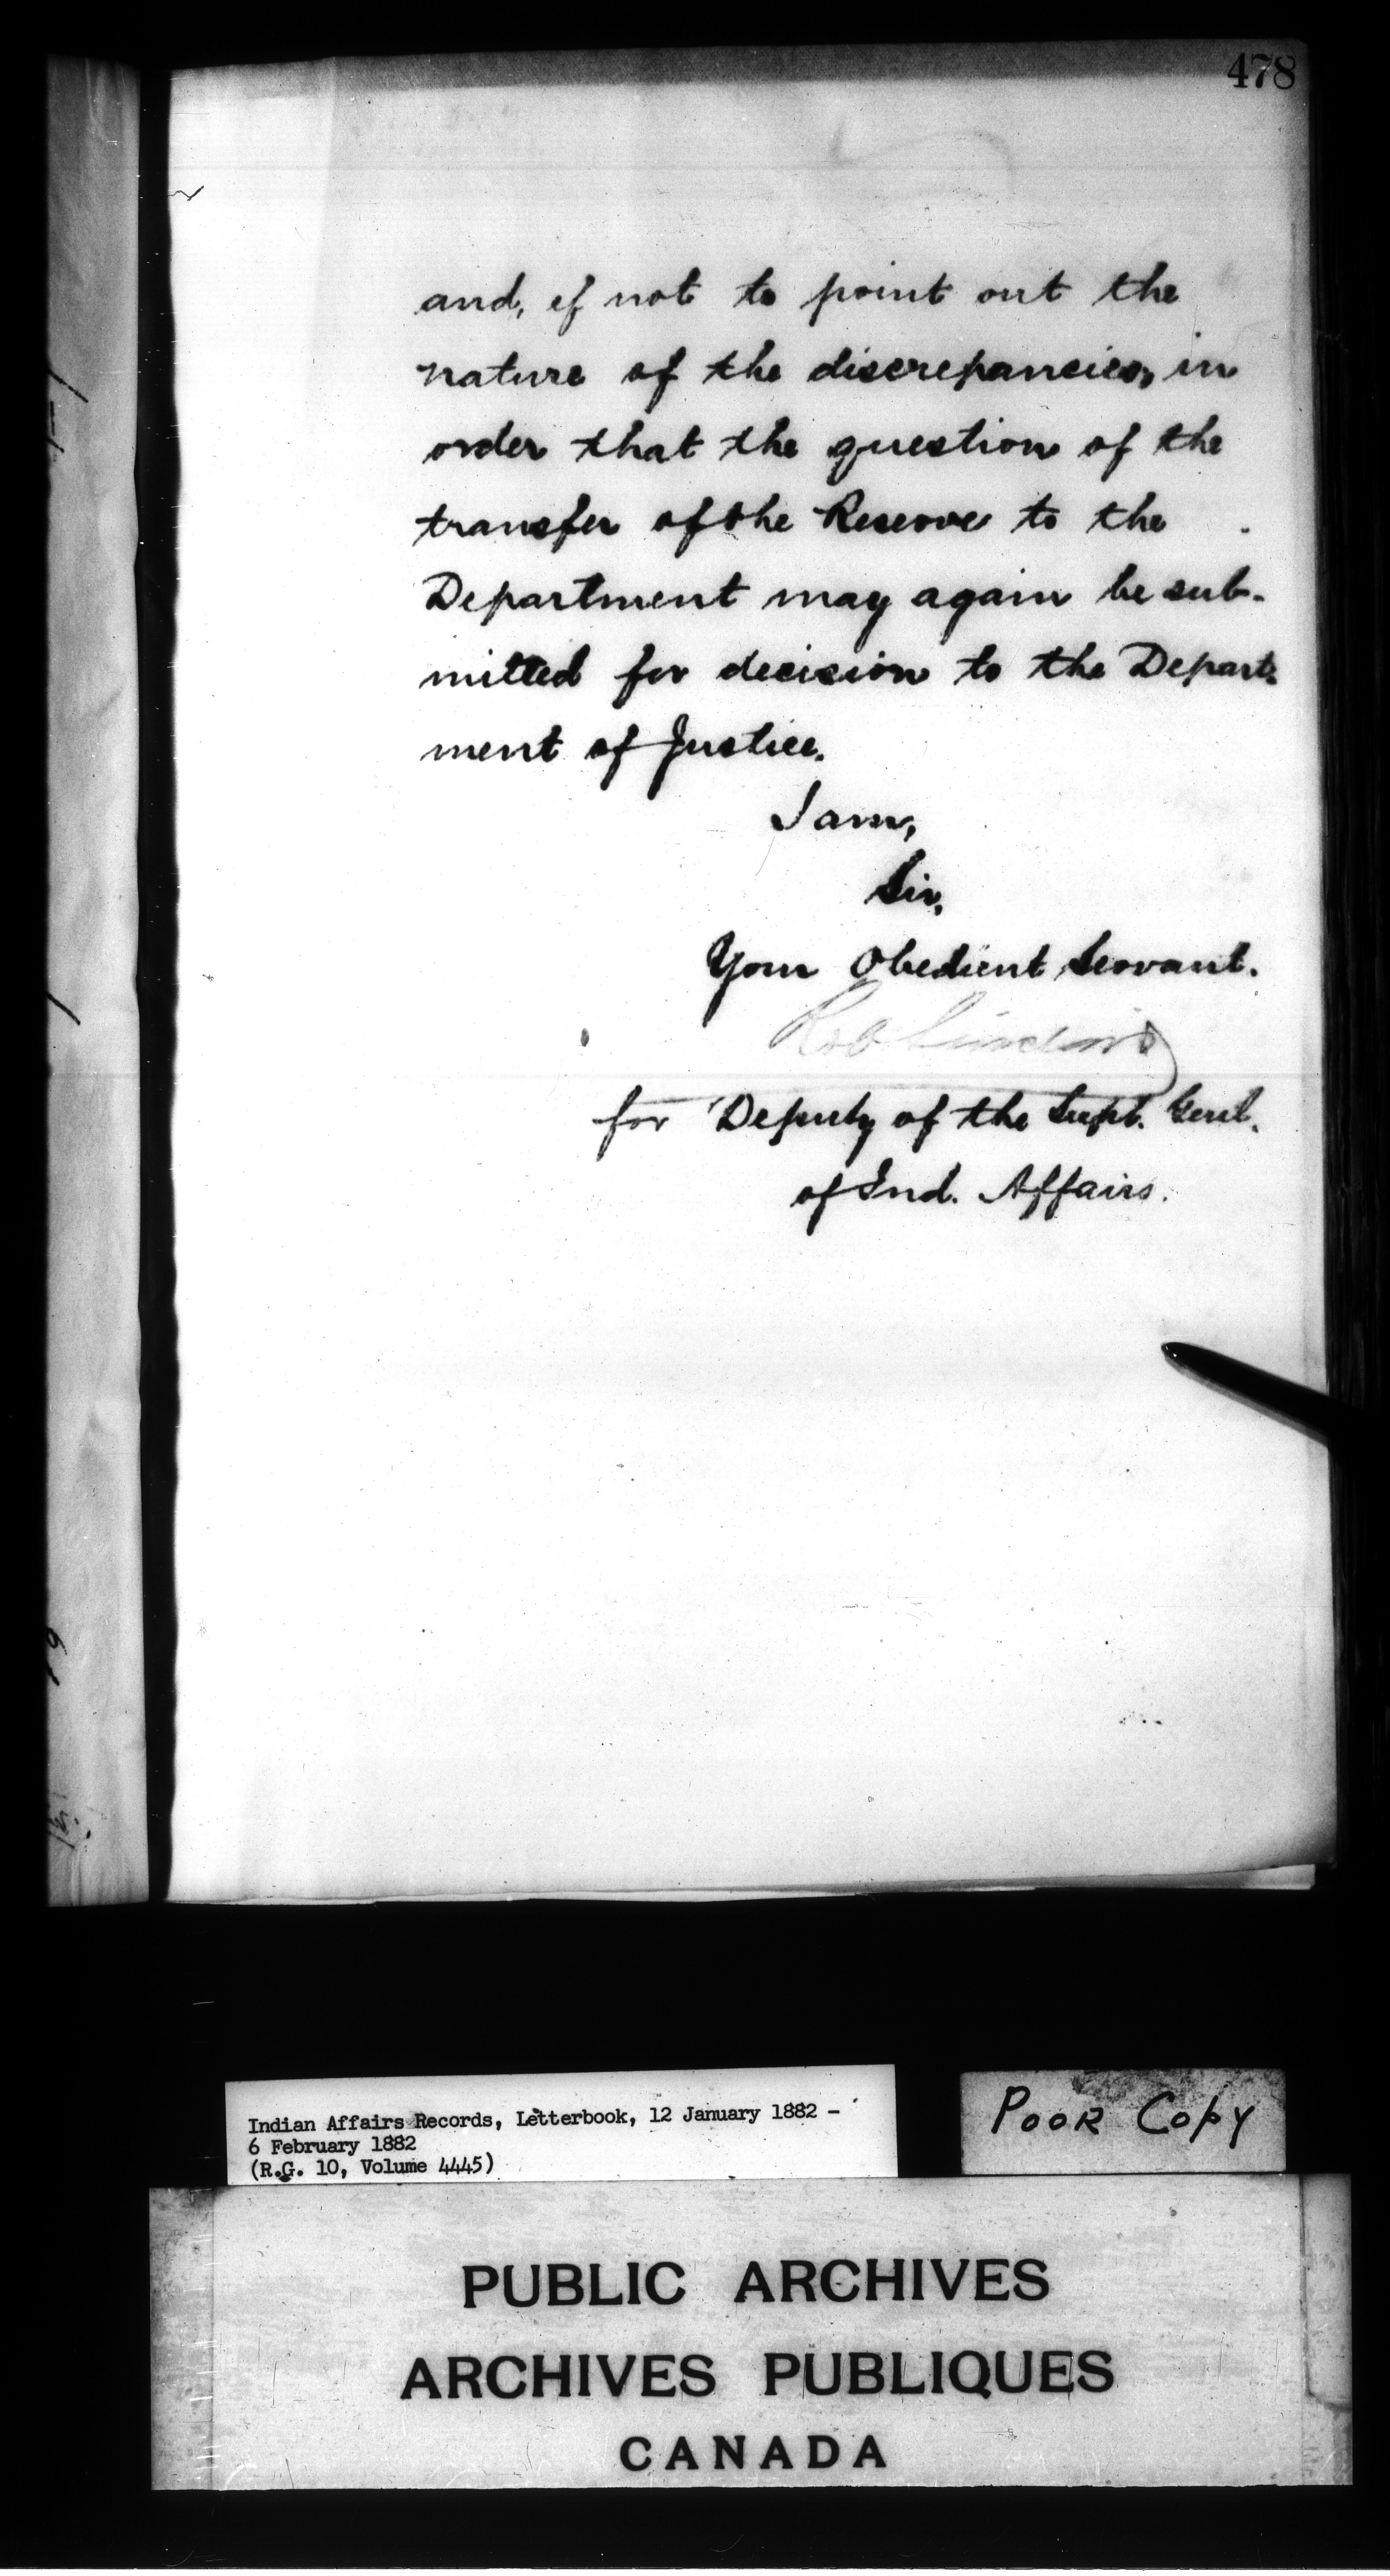 478
and, if not to point out the
nature of the discrepancies, in
order that the question of the
transfer of the Reserve to the
Department may again be sub-
mitted for decision to the Depart-
ment of Justice.
I am,
Sir,
Your Obedient Servant.
for Deputy of the Supt. Genl.
of Ind. Affairs.
Indian Affairs Records, Letterbook, 12 January 1882 -
6 February 1882
(R.G. 10, Volume 4445)
POOR COPY
PUBLIC ARCHIVES
ARCHIVES PUBLIQUES
CANADA